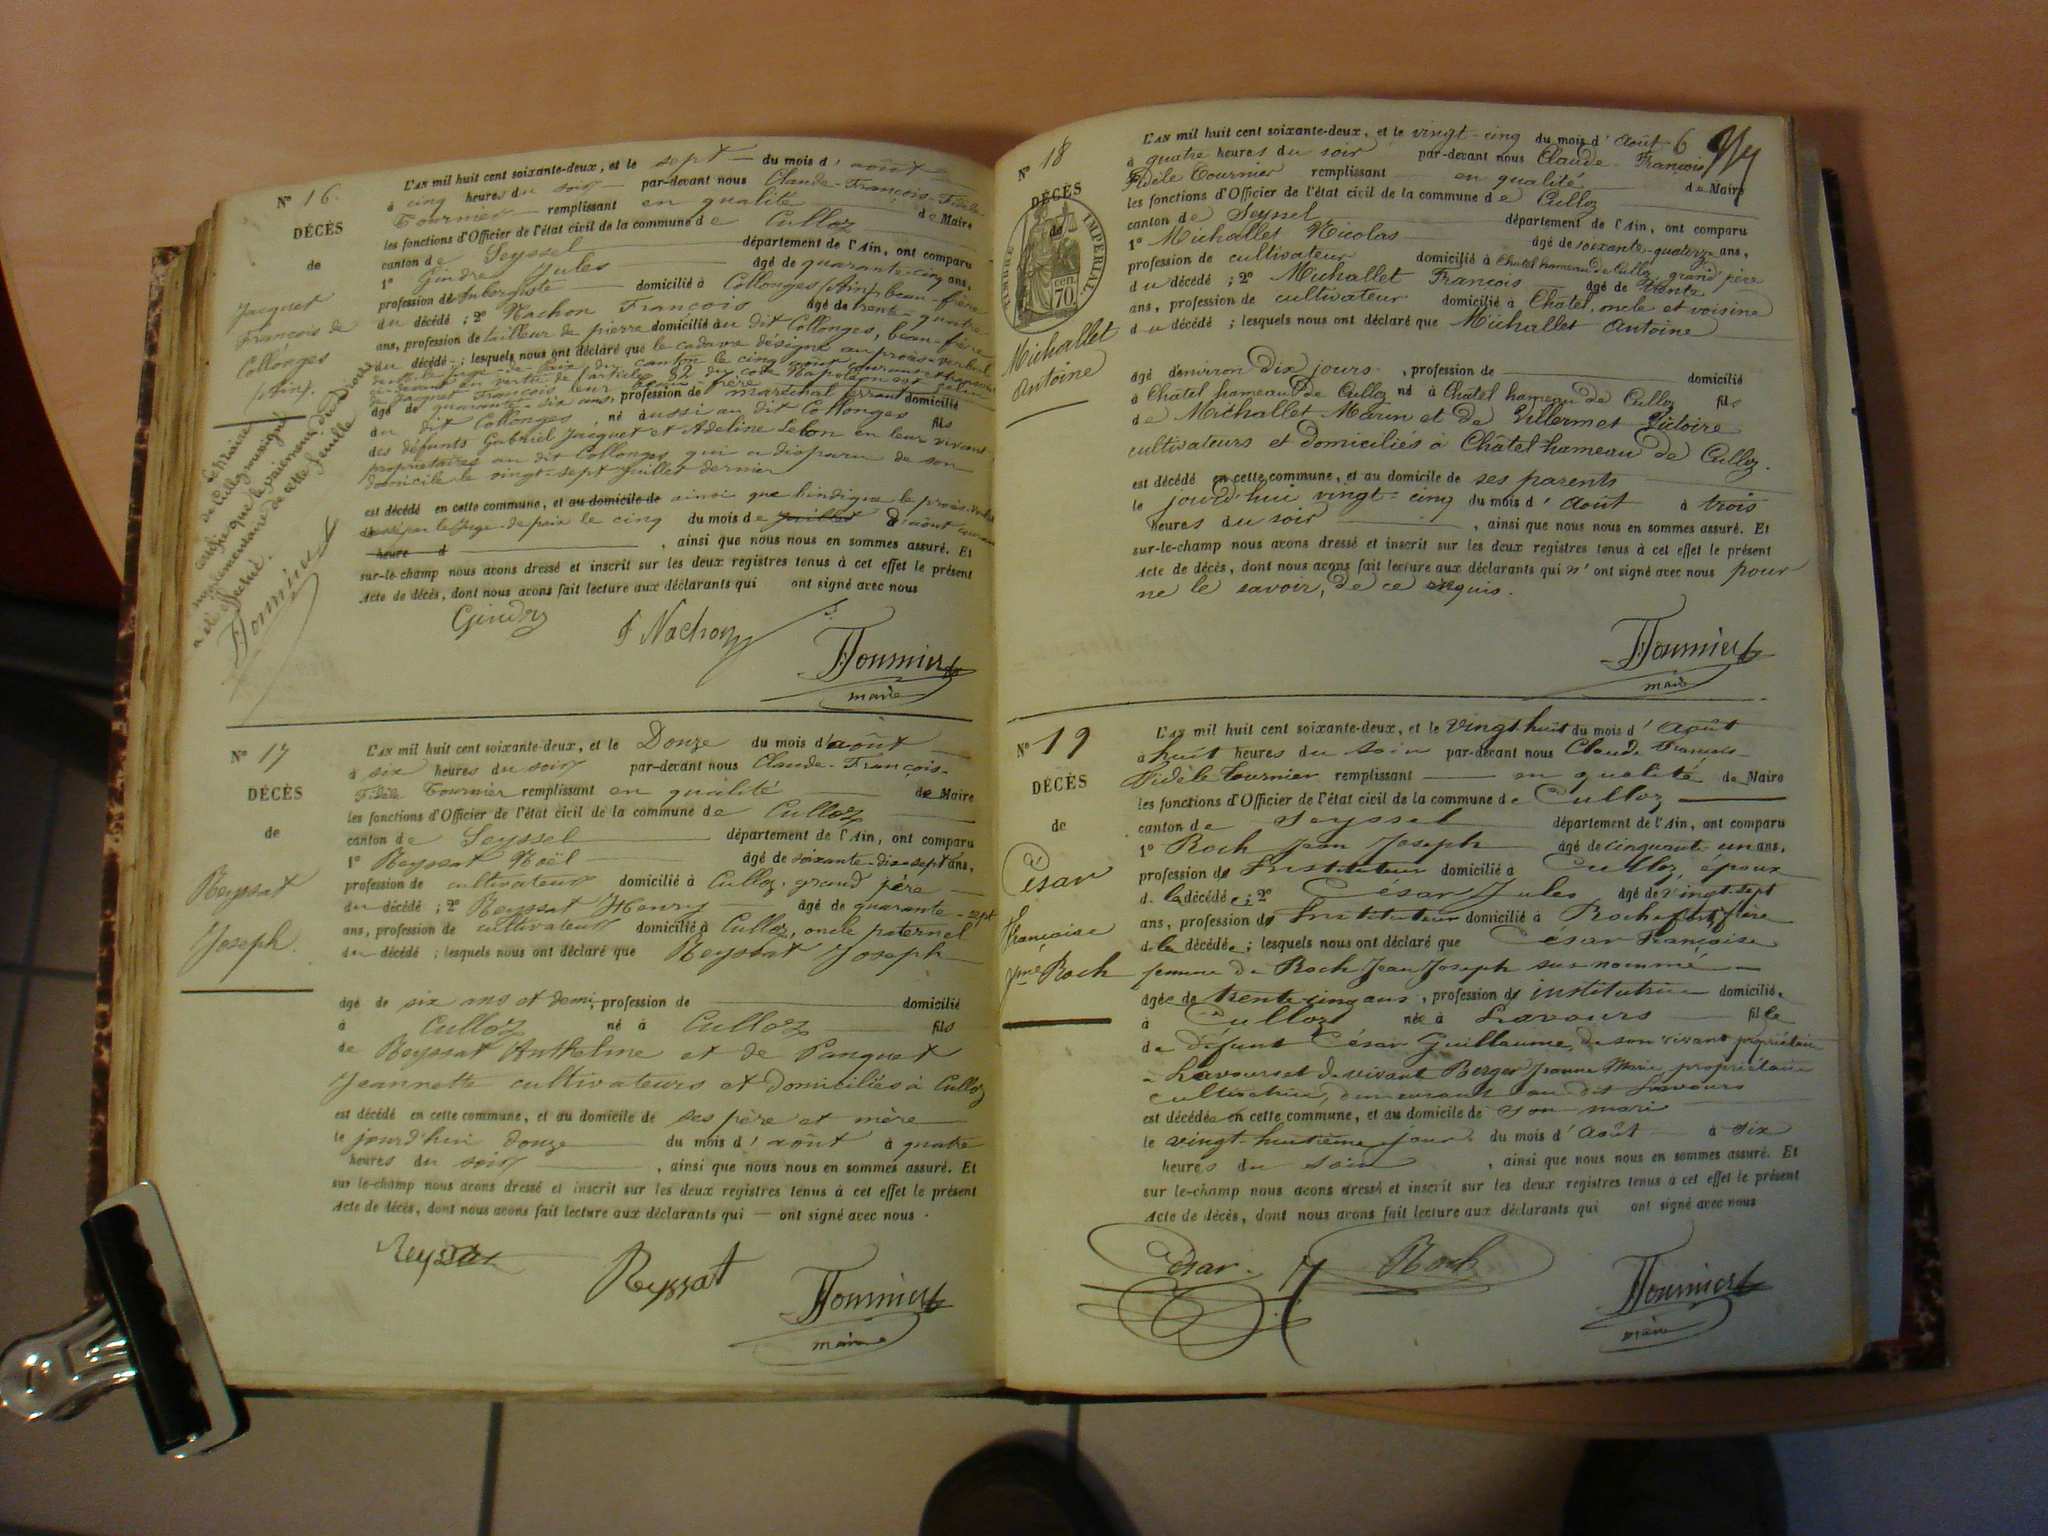 N° 16.
DÉCÈS
de
Jacquet
François de
Collonges
(Ain).
L'AN mil huit cent soixante-deux, et le sept du mois d'août
à cinq heures du soir par-devant nous Claude-François-Fidèle
Tournier remplissant en qualité de Maire
les fonctions d'Officier de l'état civil de la commune de Culloz
canton de Seyssel département de l'Ain, ont comparu
1° Gindre Jules âgé de quarante-cinq ans,
profession de domicilié à Collonges (Ain) beau-frère
du décédé ; 2° Nachon François âgé de trente-quatre
ans, profession de tailleur de pierre domicilié au dit Collonges, beau-frère
du décédé ; lesquels nous ont déclaré que le cadavre désigné au procès-verbal
de Jacquet François leur beau frère
âgé de quarante-six ans, profession de maréchal ferrant domicilié
au dit Collonges né aussi au dit Collonges fils
des défunts Gabriel Jacquet et Adeline Lebon en leur vivant
propriétaires au dit Collonges, qui a disparu de son
domicile le vingt-sept juillet dernier
est décédé en cette commune, et au domicile de ainsi que l'indique le procès-verbal
dressé par le Juge-de-paix le cinq du mois de juillet d'août courant
heure d , ainsi que nous nous en sommes assuré. Et
sur-le-champ nous avons dressé et inscrit sur les deux registres tenus à cet effet le présent
Acte de décès, dont nous avons fait lecture aux déclarants qui ont signé avec nous
Gindre
F Nachon
Tournier
maire
N° 17
DÉCÈS
de
Reyssat
Joseph.
L'AN mil huit cent soixante-deux, et le Douze du mois d'août
à six heures du soir par-devant nous Claude-François-
Fidèle Tournier remplissant en qualité de Maire
les fonctions d'Officier de l'état civil de la commune de Culloz
canton de Seyssel département de l'Ain, ont comparu
1° Reyssat Noël âgé de soixante-dix-sept ans,
profession de cultivateur domicilié à Culloz, grand père
du décédé ; 2° Reyssat Henry âgé de quarante-sept
ans, profession de cultivateur domicilié à Culloz, oncle paternel
du décédé ; lesquels nous ont déclaré que Reyssat Joseph
âgé de six ans et demi, profession de domicilié
à Culloz né à Culloz fils
de Reyssat Anthelme et de Panquet
Jeannette cultivateurs et domiciliés à Culloz
est décédé en cette commune, et au domicile de ses père et mère
le jourd'hui douze du mois d'août à quatre
heures du soir , ainsi que nous nous en sommes assuré. Et
sur le-champ nous avons dressé et inscrit sur les deux registres tenus à cet effet le présent
Acte de décès, dont nous avons fait lecture aux déclarants qui — ont signé avec nous.
Reyssat
Reyssat
Tournier
maire
N° 18
DÉCÈS
de
TIMBRE IMPÉRIAL
70 cen
Michallet
Antoine
L'AN mil huit cent soixante-deux, et le vingt-cinq du mois d'août 6
à quatre heures du soir par-devant nous Claude-François
Fidèle Tournier remplissant en qualité de Maire
les fonctions d'Officier de l'état civil de la commune de Culloz
canton de Seyssel département de l'Ain, ont comparu
1° Michallet Nicolas âgé de soixante-quatorze ans,
profession de cultivateur domicilié à Châtel hameau de Culloz, grand père
du décédé ; 2° Michallet François âgé de trente
ans, profession de cultivateur domicilié à Châtel, oncle et voisine
du décédé ; lesquels nous ont déclaré que Michallet Antoine
âgé d'environ dix jours, profession de domicilié
à Châtel hameau de Culloz né à Châtel hameau de Culloz fils
de Michallet Marin et de Villermet Victoire
cultivateurs et domiciliés à Châtel hameau de Culloz.
est décédé en cette commune, et au domicile de ses parents
le jourd'hui vingt-cinq du mois d'août à trois
heures du soir , ainsi que nous nous en sommes assuré. Et
sur-le-champ nous avons dressé et inscrit sur les deux registres tenus à cet effet le présent
Acte de décès, dont nous avons fait lecture aux déclarants qui n'ont signé avec nous pour
ne le savoir, de ce requis.
Tournier
maire
N° 19
DÉCÈS
de
César
Françoise
fme Roch
L'AN mil huit cent soixante-deux, et le vingt huit du mois d'août
à huit heures du soir par-devant nous Claude François
Fidèle Tournier remplissant en qualité de Maire
les fonctions d'Officier de l'état civil de la commune de Culloz
canton de Seyssel département de l'Ain, ont comparu
1° Roch Jean Joseph âgé de cinquante un ans,
profession de Instituteur domicilié à Culloz, époux
de la décédée ; 2° César Jules âgé de vingt-sept
ans, profession de Instituteur domicilié à Rochefort, frère
de la décédée ; lesquels nous ont déclaré que César Françoise
femme de Roch Jean Joseph sus nommé
âgée de trente cinq ans, profession de institutrice domiciliée
à Culloz née à Lavours fille
de défunt César Guillaume, de son vivant propriétaire
à Lavours et de vivant Berger Jeanne Marie propriétaire
cultivatrice, demeurant au dit Lavours
est décédée en cette commune, et au domicile de son mari
le vingt-huitième jour du mois d'août à six
heures du soir , ainsi que nous nous en sommes assuré. Et
sur le-champ nous avons dressé et inscrit sur les deux registres tenus à cet effet le présent
Acte de décès, dont nous avons fait lecture aux déclarants qui ont signé avec nous
César
Roch
Tournier
maire